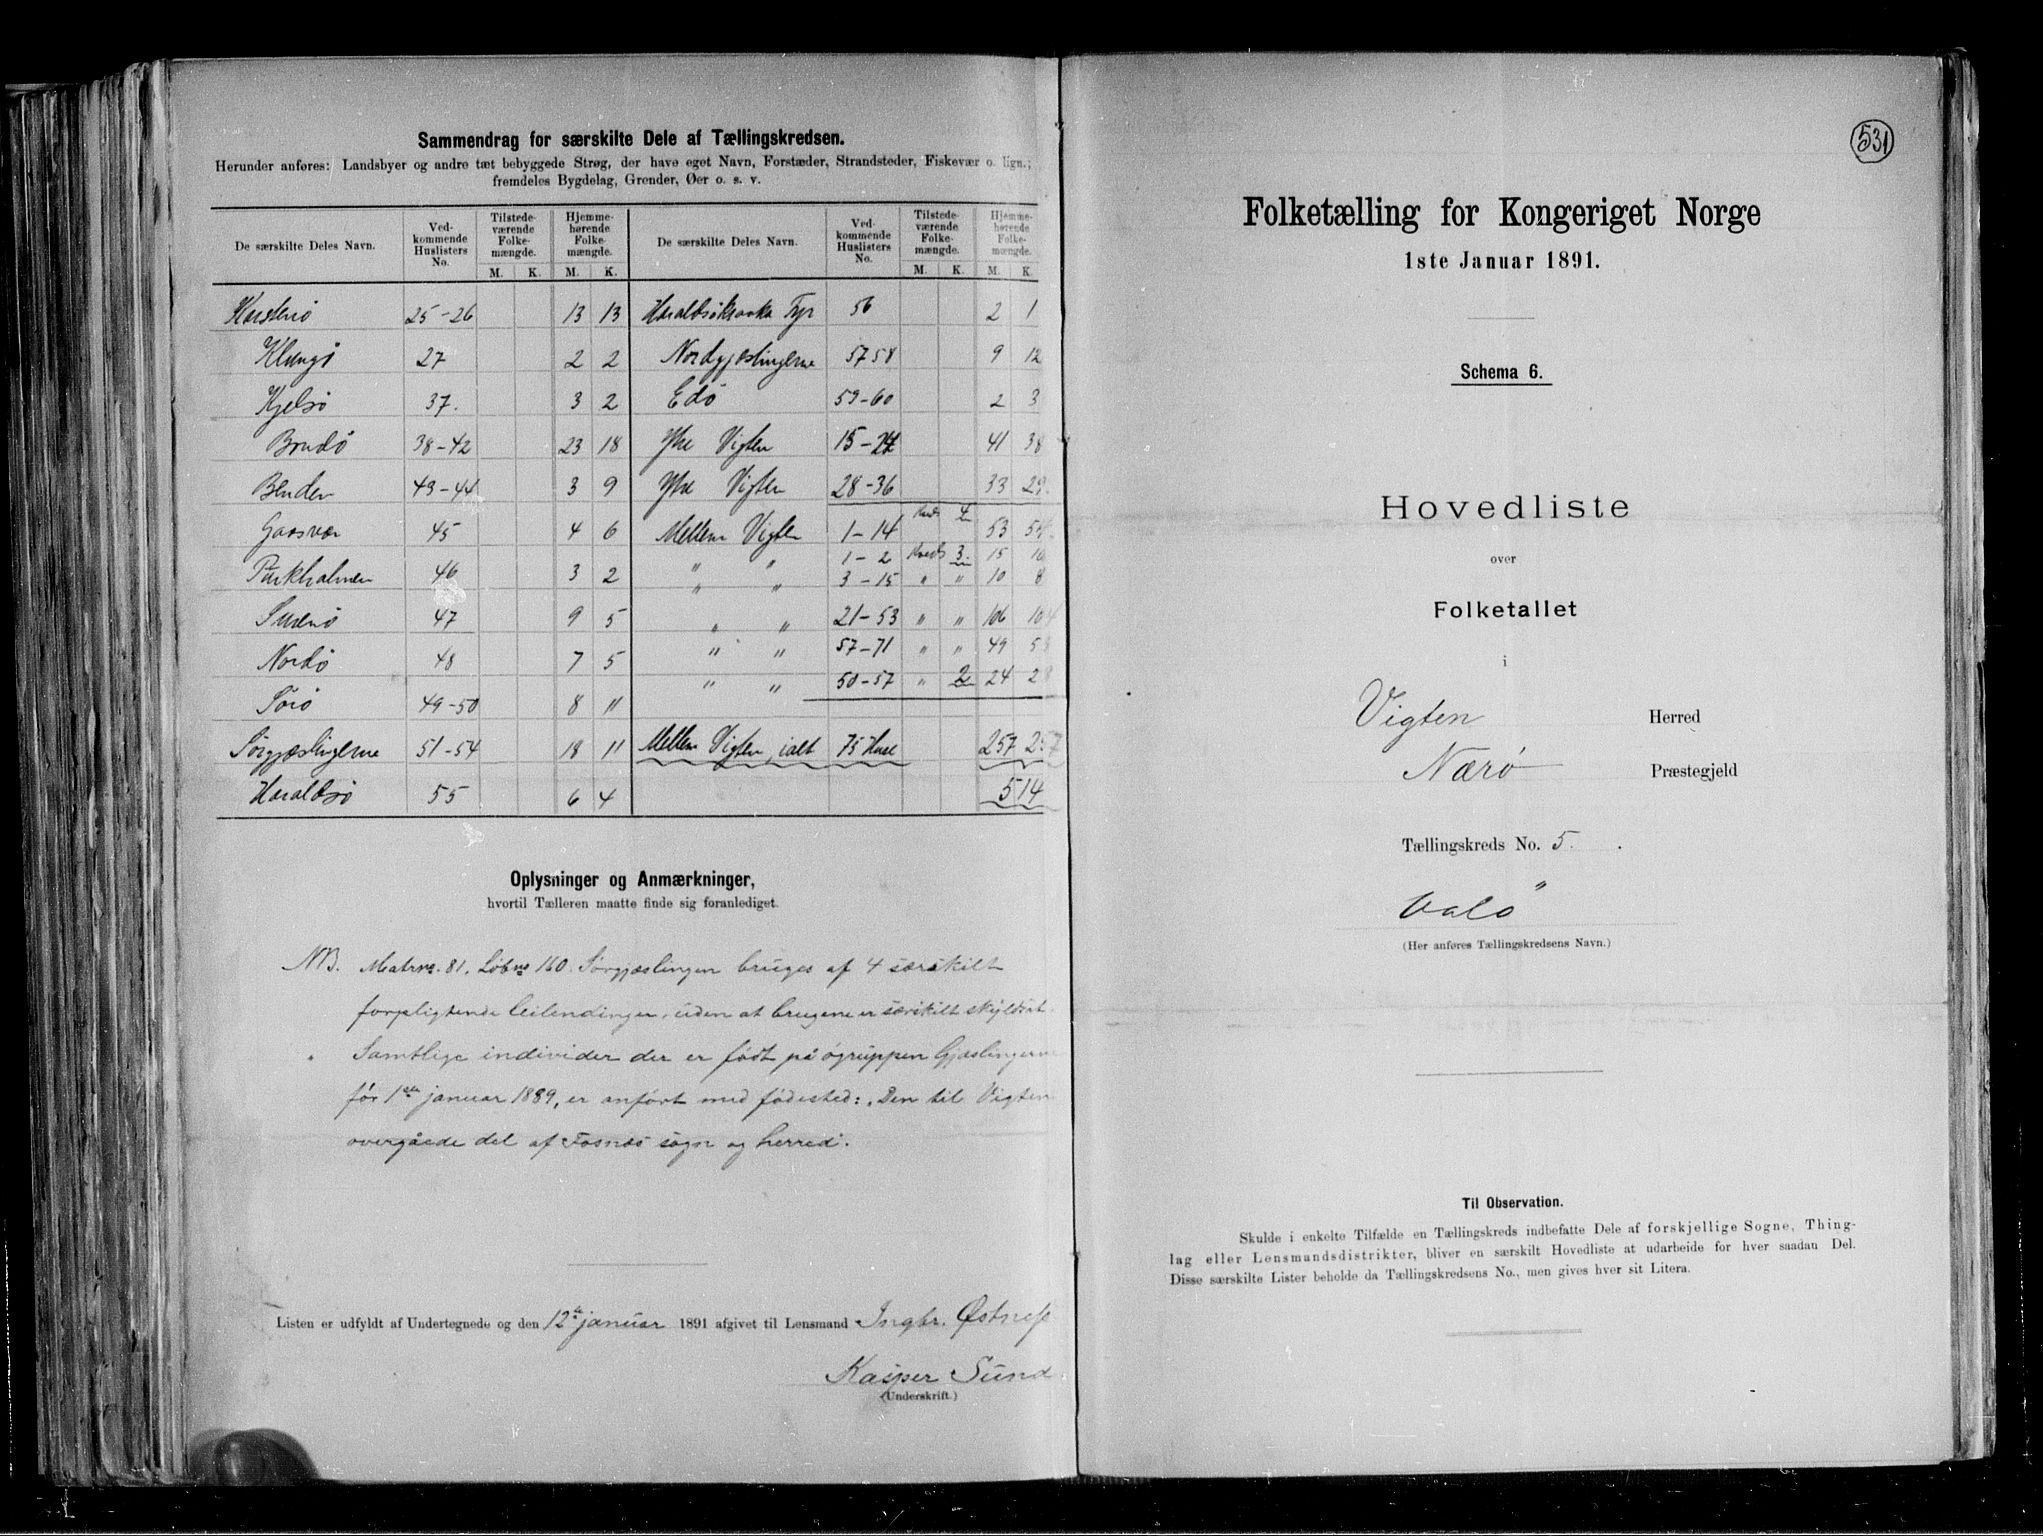 Sammendrag for særskilte Dele af Tællingskredsen.
Herunder anføres: Landsbyer og andre tæt bebyggede Strøg, der have eget Navn, Forstæder, Strandsteder, Fiskevær o. lign.;
fremdeles Bygdelag, Grender, Øer o. s. v.
De særskilte Deles Navn. Ved-kommende Huslisters No. Tilstede-værende Folke-mængde. Hjemme-hørende Folke-mængde. De særskilte Deles Navn. Ved-kommende Huslisters No. Tilstede-værende Folke-mængde. Hjemme-hørende Folke-mængde.
M. K. M. K. M. K. M. K.
25-26 13 13 Fyr 56 2 1
27 2 2 Nordgjæslingerne 57 58 9 12
Kjelsø 37. 3 2 Edø 59-60 2 3
38-42 23 18 Ytre Vigten 15-24 41 38
43-44 3 9 Ytre Vigten 28-36 33 29
Gaasvær 45 4 6 Mellem Vigten 1-14 Kreds 4 53
" " 1-2 Kreds 3. 15
46 3 2 " " 3-15 " " 10 8
47 9 5 " " 21-53 " " 106 104
Nordø 48 7 5 " " 57-71 " " 49 53
Sørø 49-50 8 11 " " 50-57 " 2 24 28
Sørgjæslingerne 51-54 18 11 Mellem Vigten ialt 75 Huse 257 257
Haraldsø 55 6 4 514
Oplysninger og Anmærkninger,
hvortil Tælleren maatte finde sig foranlediget.
NB. Matrno. 81. Løbno 160. Sørgjæslingen bruges af 4 særskilt
forpligtende leilendinger, uden at brugene er særskilt skyldsat.
" Samtlige individer der er født på øgruppen Gjæslingerne
før 1ste januar 1889, er anført med fødested: "Den til Vigten
overgåede del af Fosnæs sogn og herred".
Listen er udfyldt af Undertegnede og den 12te januar 1891 afgivet til Lensmand Ingbr. Østness
Kasper Sund
(Underskrift.)
531
Folketælling for Kongeriget Norge
1ste Januar 1891.
Schema 6.
Hovedliste
over
Folketallet
i
Vigten Herred
Nærø Præstegjeld
Tællingskreds No. 5.
Valø
(Her anføres Tællingskredsens Navn.)
Til Observation.
Skulde i enkelte Tilfælde en Tællingskreds indbefatte Dele af forskjellige Sogne, Thing-
lag eller Lensmandsdistrikter, bliver en særskilt Hovedliste at udarbeide for hver saadan Del.
Disse særskilte Lister beholde da Tællingskredsens No., men gives hver sit Litera.